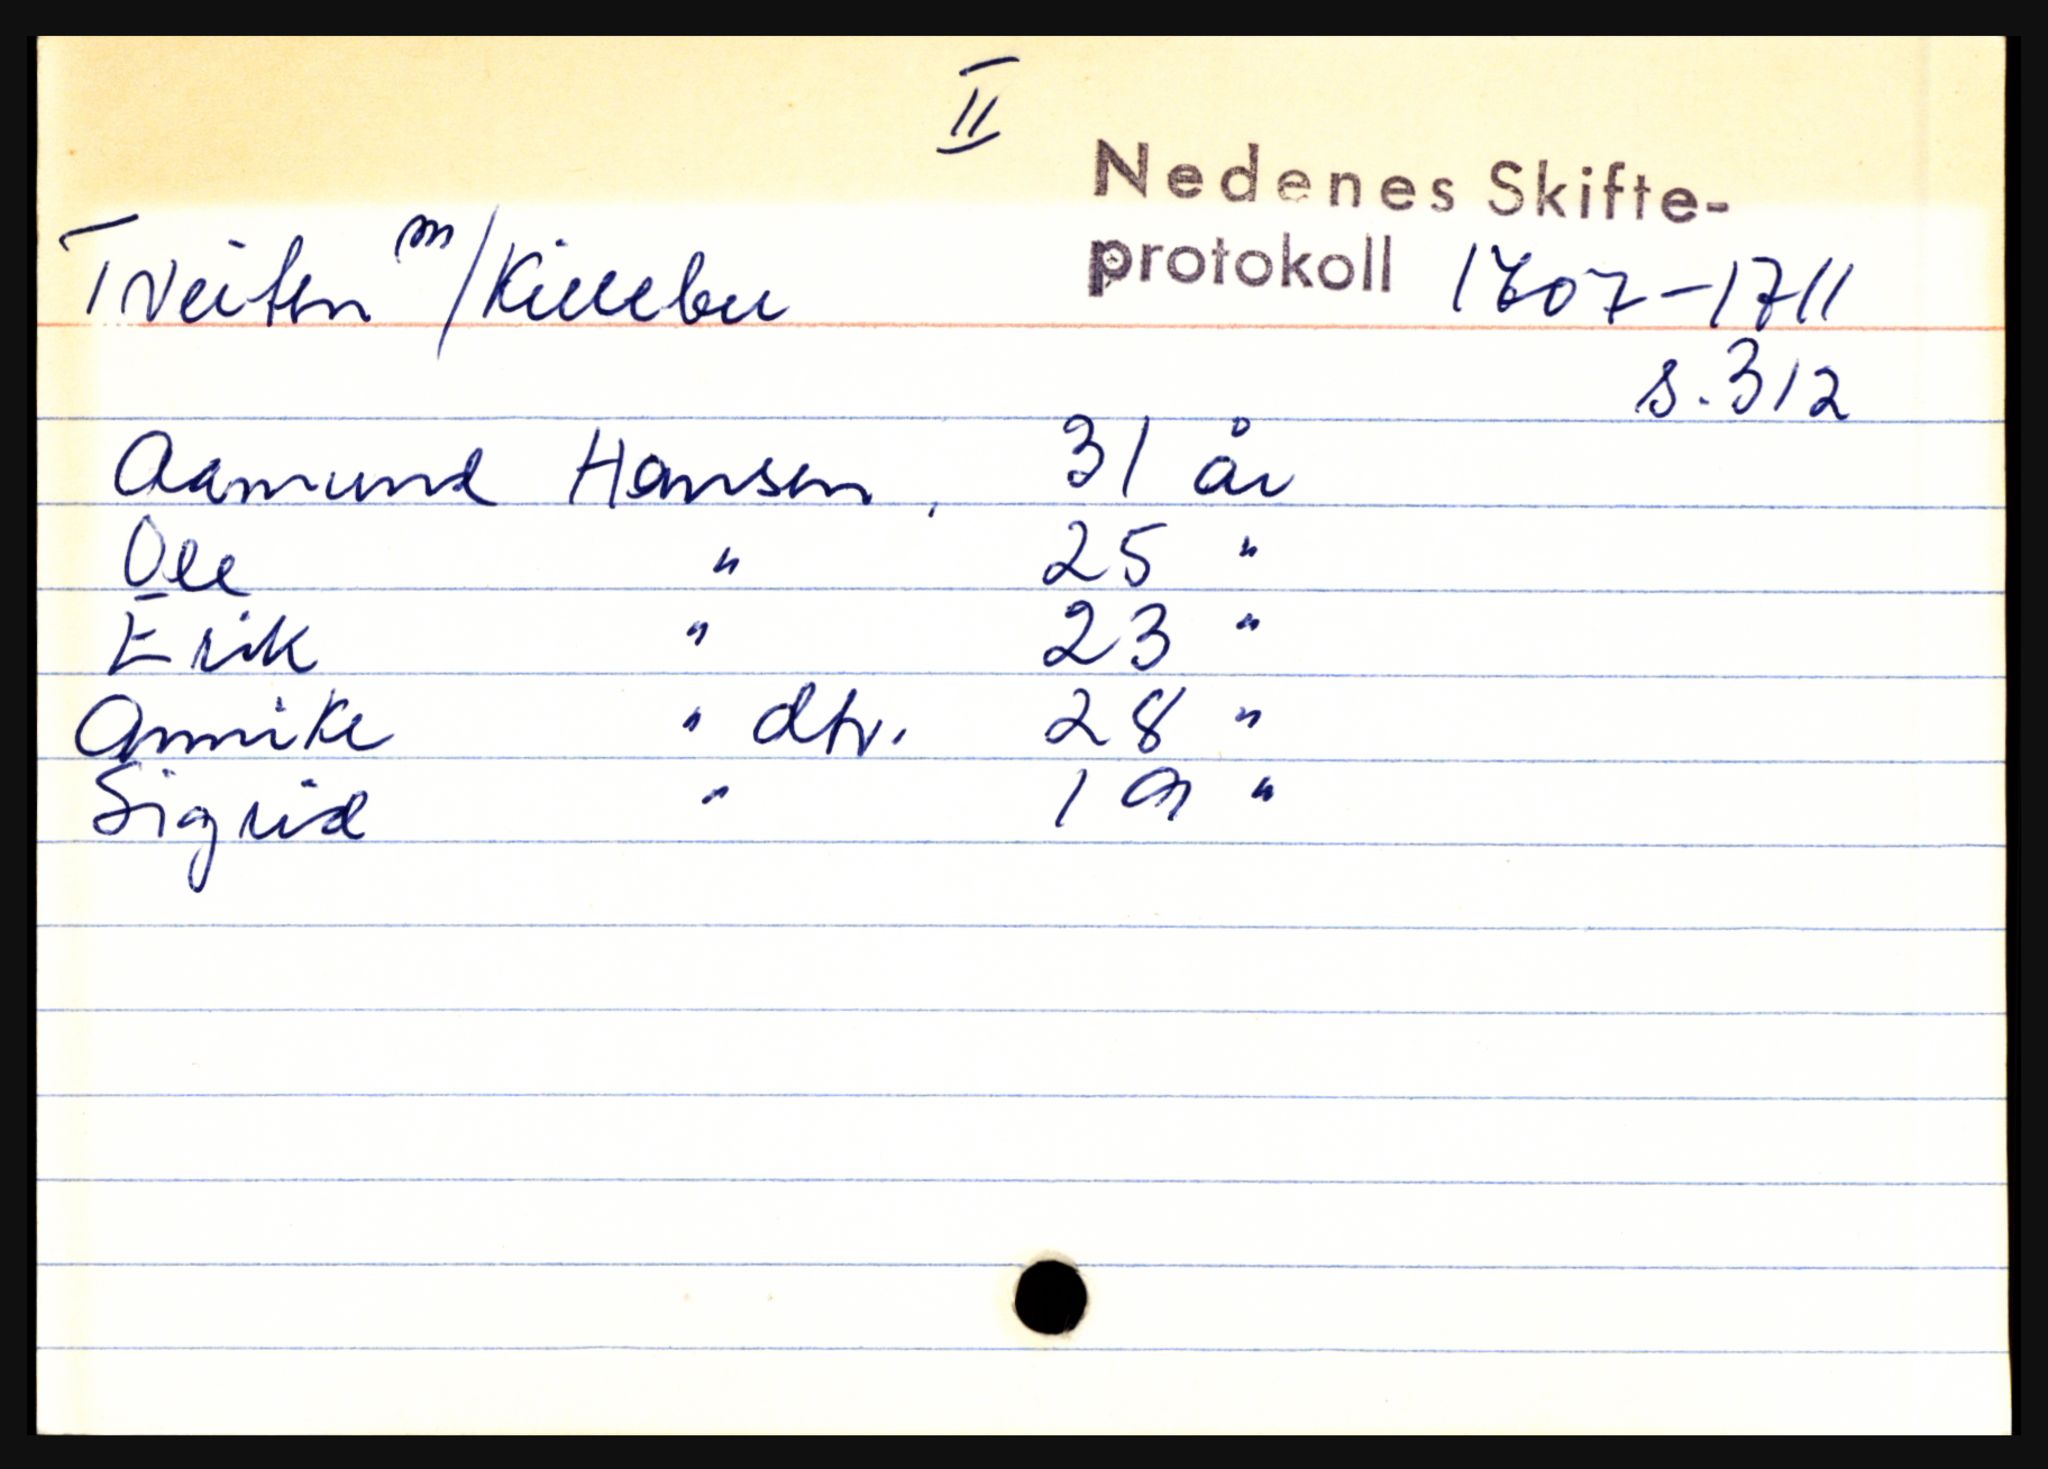 II
Nedenes Skifte-
Tveiten m/Killebu protokoll 1707-1711
s. 312
Aamund Hansen, 31 år
Ole " 25 "
Erik " 23 "
Annike " dtr. 28 "
Sigrid " 19 "